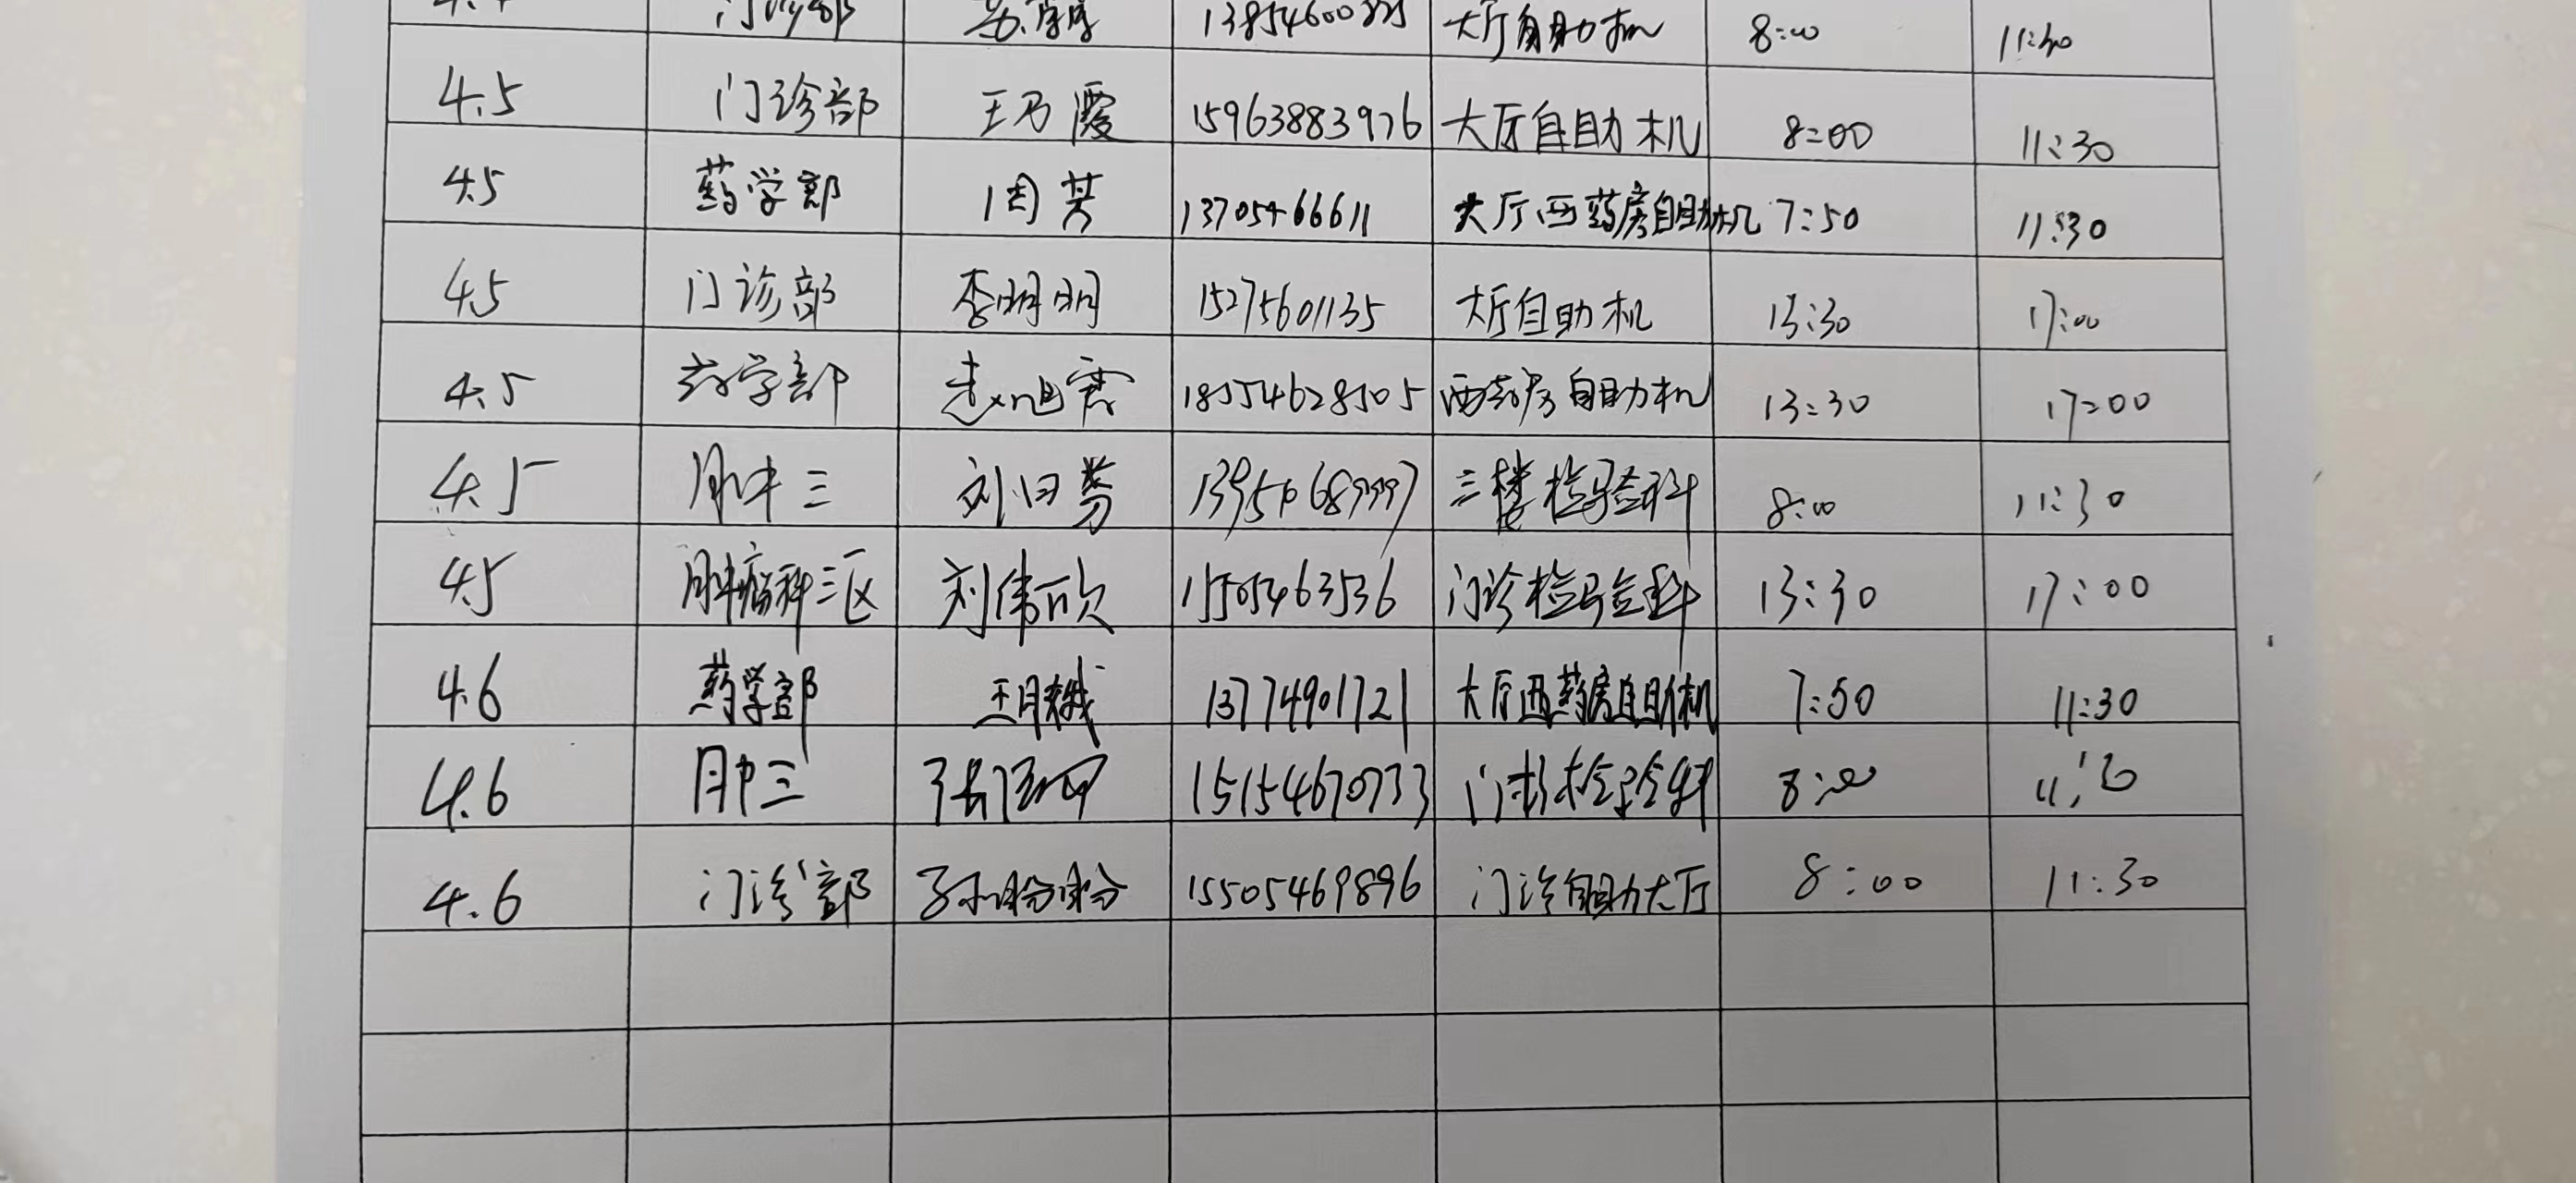 门诊部 大厅自助机 8:00 11:30
4.5 门诊部 王乃霞 15963883976 大厅自助机 8:00 11:30
4.5 药学部 周芳 13705466611 大厅西药房自助机 7:50 11:30
4.5 门诊部 李明明 15275601135 大厅自助机 13:30 17:00
4.5 药学部 赵旭霞 18554628505 西药房自助机 13:30 17:00
4.5 肿三 刘日芬 三楼检验科 8:00 11:30
4.5 肿瘤科三区 刘伟欣 15505463536 门诊检验科 13:30 17:00
4.6 药学部 王月娥 13774901721 大厅西药房自助机 7:50 11:30
4.6 肿三 15154670733 门诊检验科 8:00
4.6 门诊部 孙盼盼 15505469896 门诊自助大厅 8:00 11:30